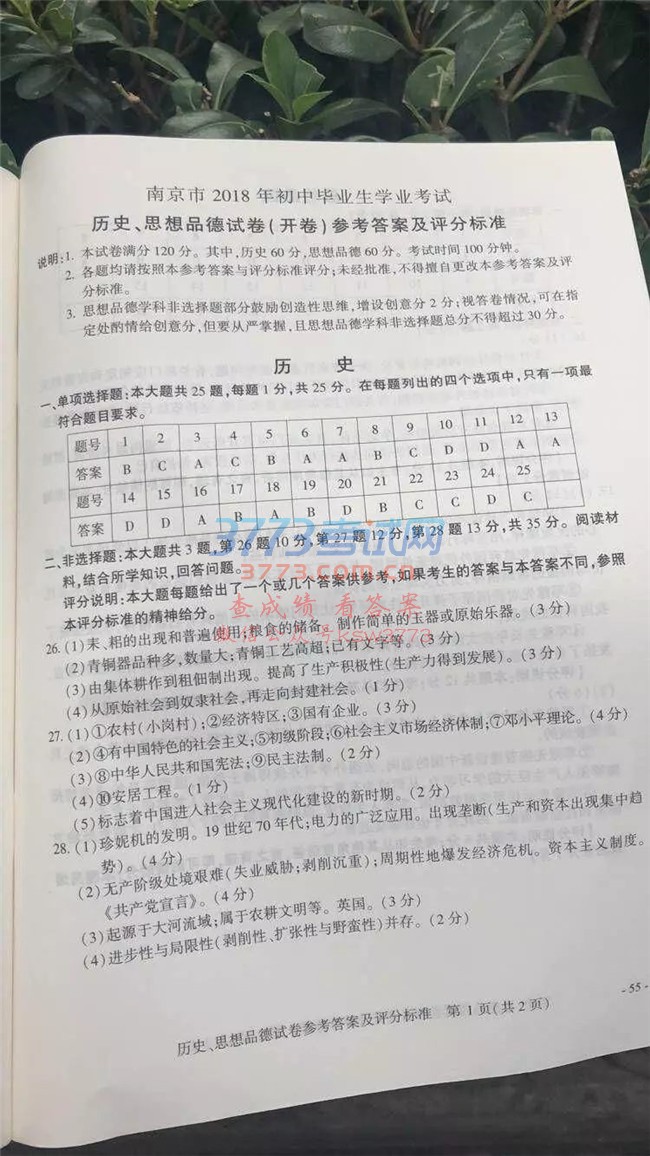 南京市 2018 年初中毕业生学业考试
历史、思想品德试卷(开卷)参考答案及评分标准
说明:1. 本试卷满分 120 分。其中,历史 60 分,思想品德 60 分。考试时间 100 分钟。
2. 各题均请按照本参考答案与评分标准评分;未经批准,不得擅自更改本参考答案及评
分标准。
3. 思想品德学科非选择题部分鼓励创造性思维,增设创意分 2 分;视答卷情况,可在指
定处酌情给创意分,但要从严掌握,且思想品德学科非选择题总分不得超过 30 分。
历 史
一、单项选择题:本大题共 25 题,每题 1 分,共 25 分。在每题列出的四个选项中,只有一项最
符合题目要求。
题号 1 2 3 4 5 6 7 8 9 10 11 12 13
答案 B C A C B A A B C D D A A
题号 14 15 16 17 18 19 20 21 22 23 24 25
答案 D D A B A B D B C C D C
3773考试网
二、非选择题:本大题共 3 题,第 26 题 10 分,第 27 题 12 分,第 28 题 13 分,共 35 分。阅读材
料,结合所学知识,回答问题。
www.3773.com.cn
评分说明:本大题每题给出了一个或几个答案供参考,如果考生的答案与本答案不同,参照
本评分标准的精神给分。
查成绩 看答案
微信公众号ksw3773
26. (1)耒、耜的出现和普遍使用;粮食的储备。制作简单的玉器或原始乐器。(3 分)
(2)青铜器品种多,数量大;青铜工艺高超;已有文字等。(3 分)
(3)由集体耕作到租佃制出现。提高了生产积极性(生产力得到发展)。(3 分)
(4)从原始社会到奴隶社会,再走向封建社会。(1 分)
27. (1)①农村(小岗村);②经济特区;③国有企业。(3 分)
(2)④有中国特色的社会主义;⑤初级阶段;⑥社会主义市场经济体制;⑦邓小平理论。(4 分)
(3)⑧中华人民共和国宪法;⑨民主法制。(2 分)
(4)⑩安居工程。(1 分)
(5)标志着中国进入社会主义现代化建设的新时期。(2 分)
28. (1)珍妮机的发明。19 世纪 70 年代;电力的广泛应用。出现垄断(生产和资本出现集中趋
势)。(4 分)
(2)无产阶级处境艰难(失业威胁;剥削沉重);周期性地爆发经济危机。资本主义制度。
《共产党宣言》。(4 分)
(3)起源于大河流域;属于农耕文明等。英国。(3 分)
(4)进步性与局限性(剥削性、扩张性与野蛮性)并存。(2 分)
- 55 -
历史、思想品德试卷参考答案及评分标准 第 1 页(共 2 页)